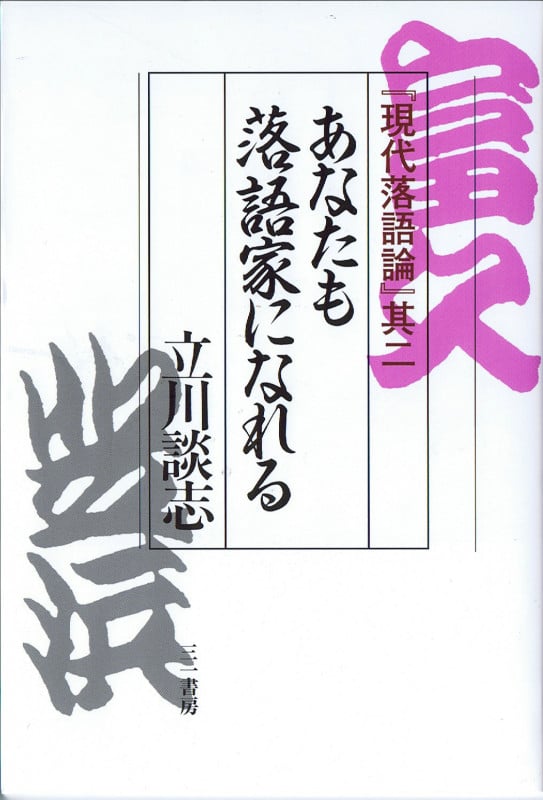 富久
『現代落語論』其二
あなたも
落語家になれる
立川談志
芝浜
三一書房